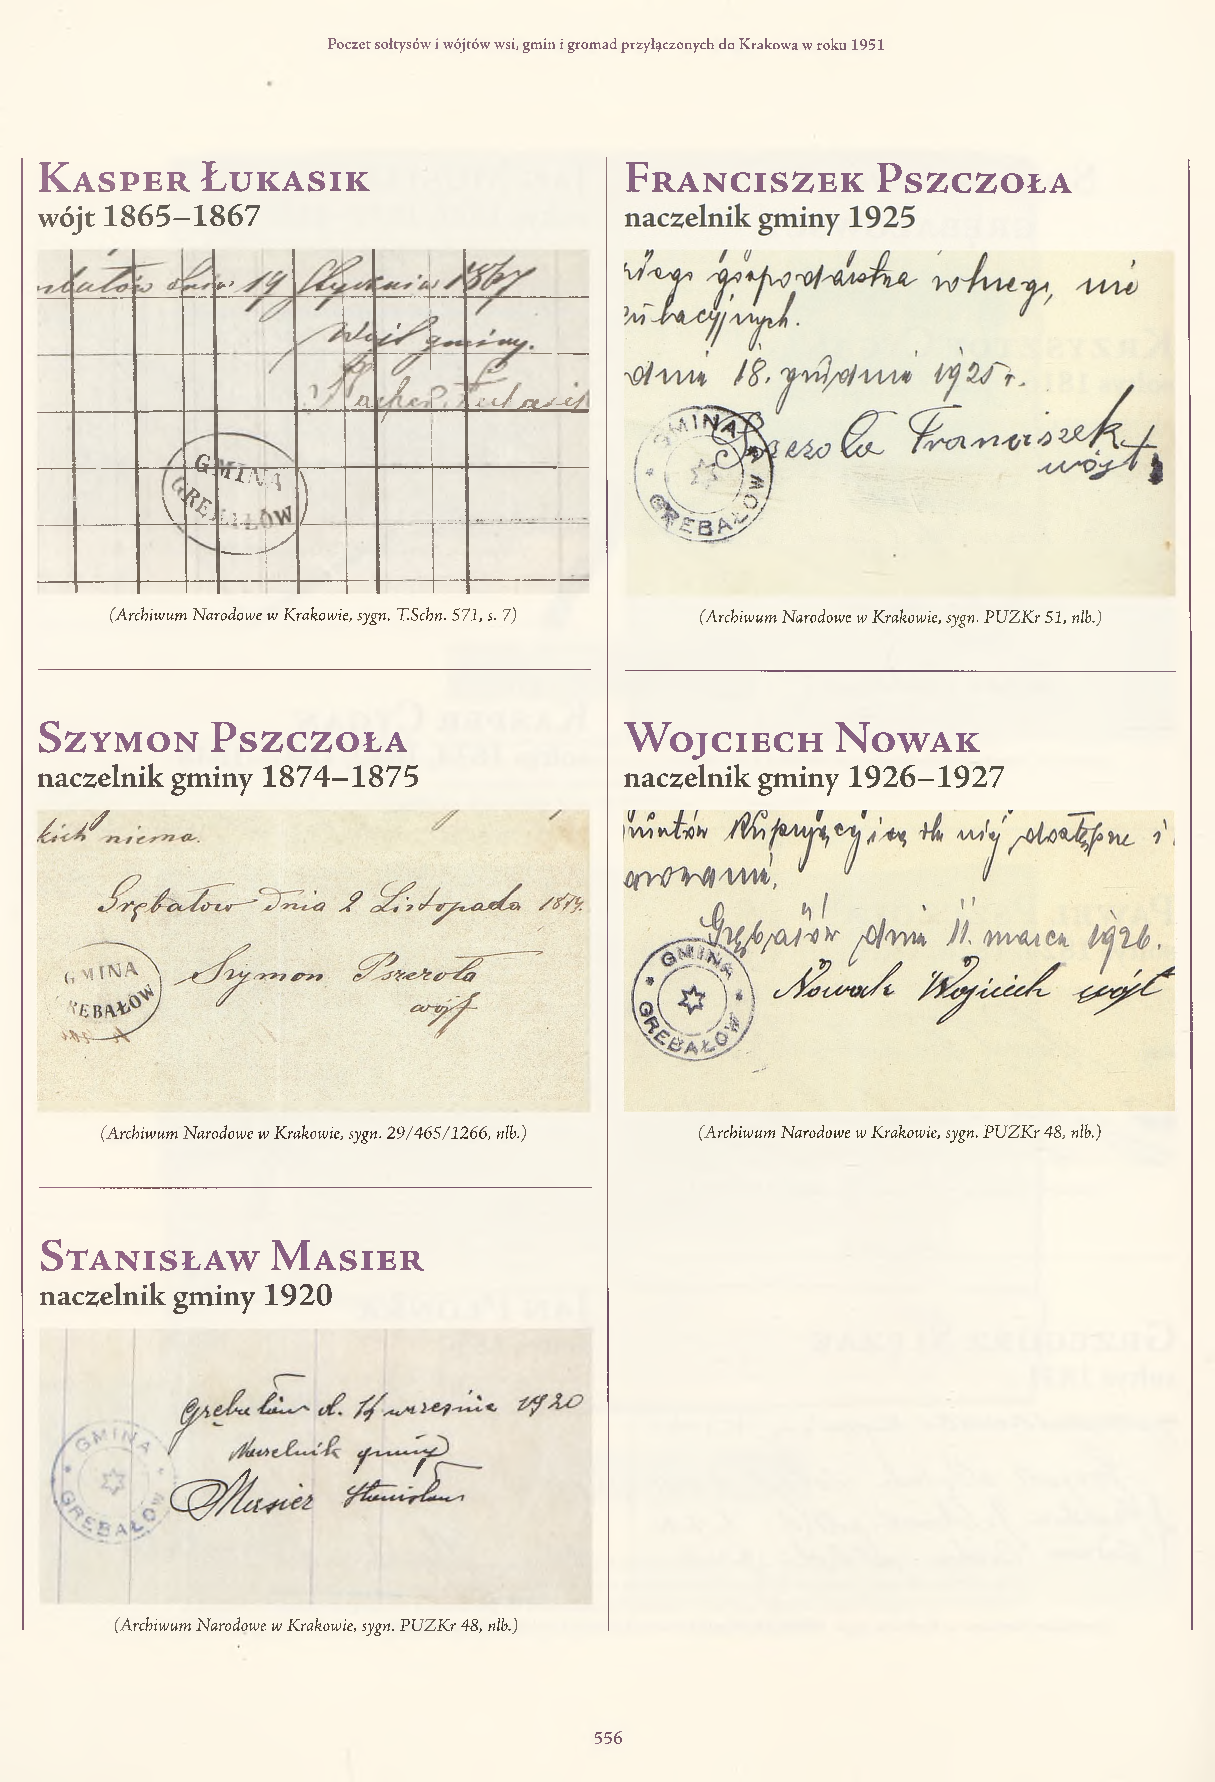 Poczet sołtysów i wójtów wsi, gmin i gromad przyłączonych do Krakowa w roku 1951
Kasper Łukasik
wójt 1865–1867
dnia 19 Stycznia 1867
Wójt gminy.
Kacper Łukasik
GMINA
GRĘBAŁÓW
(Archiwum Narodowe w Krakowie, sygn. T.Schn. 571, s. 7)
Szymon Pszczoła
naczelnik gminy 1874–1875
kich niema.
Grębałow dnia 2 Listopada 1874.
GMINA
RĘBAŁÓW
Szymon Pszczoła
wójt
(Archiwum Narodowe w Krakowie, sygn. 29/465/1266, nlb.)
Stanisław Masier
naczelnik gminy 1920
Grębałów d. 14 września 1920
Naczelnik gminy
Masier Stanisław
GMINA
GRĘBAŁÓW
(Archiwum Narodowe w Krakowie, sygn. PUZKr 48, nlb.)
Franciszek Pszczoła
naczelnik gminy 1925
gospodarstwa rolnego, nie
dnia 18. grudnia 1925 r.
GMINA
GRĘBAŁÓW
Pszczoła Franciszek
wójt
(Archiwum Narodowe w Krakowie, sygn. PUZKr 51, nlb.)
Wojciech Nowak
naczelnik gminy 1926–1927
dla niej dostępne i
Grębałów dnia 11. marca 1926.
GMINA
GRĘBAŁÓW
Nowak Wojciech wójt
(Archiwum Narodowe w Krakowie, sygn. PUZKr 48, nlb.)
556